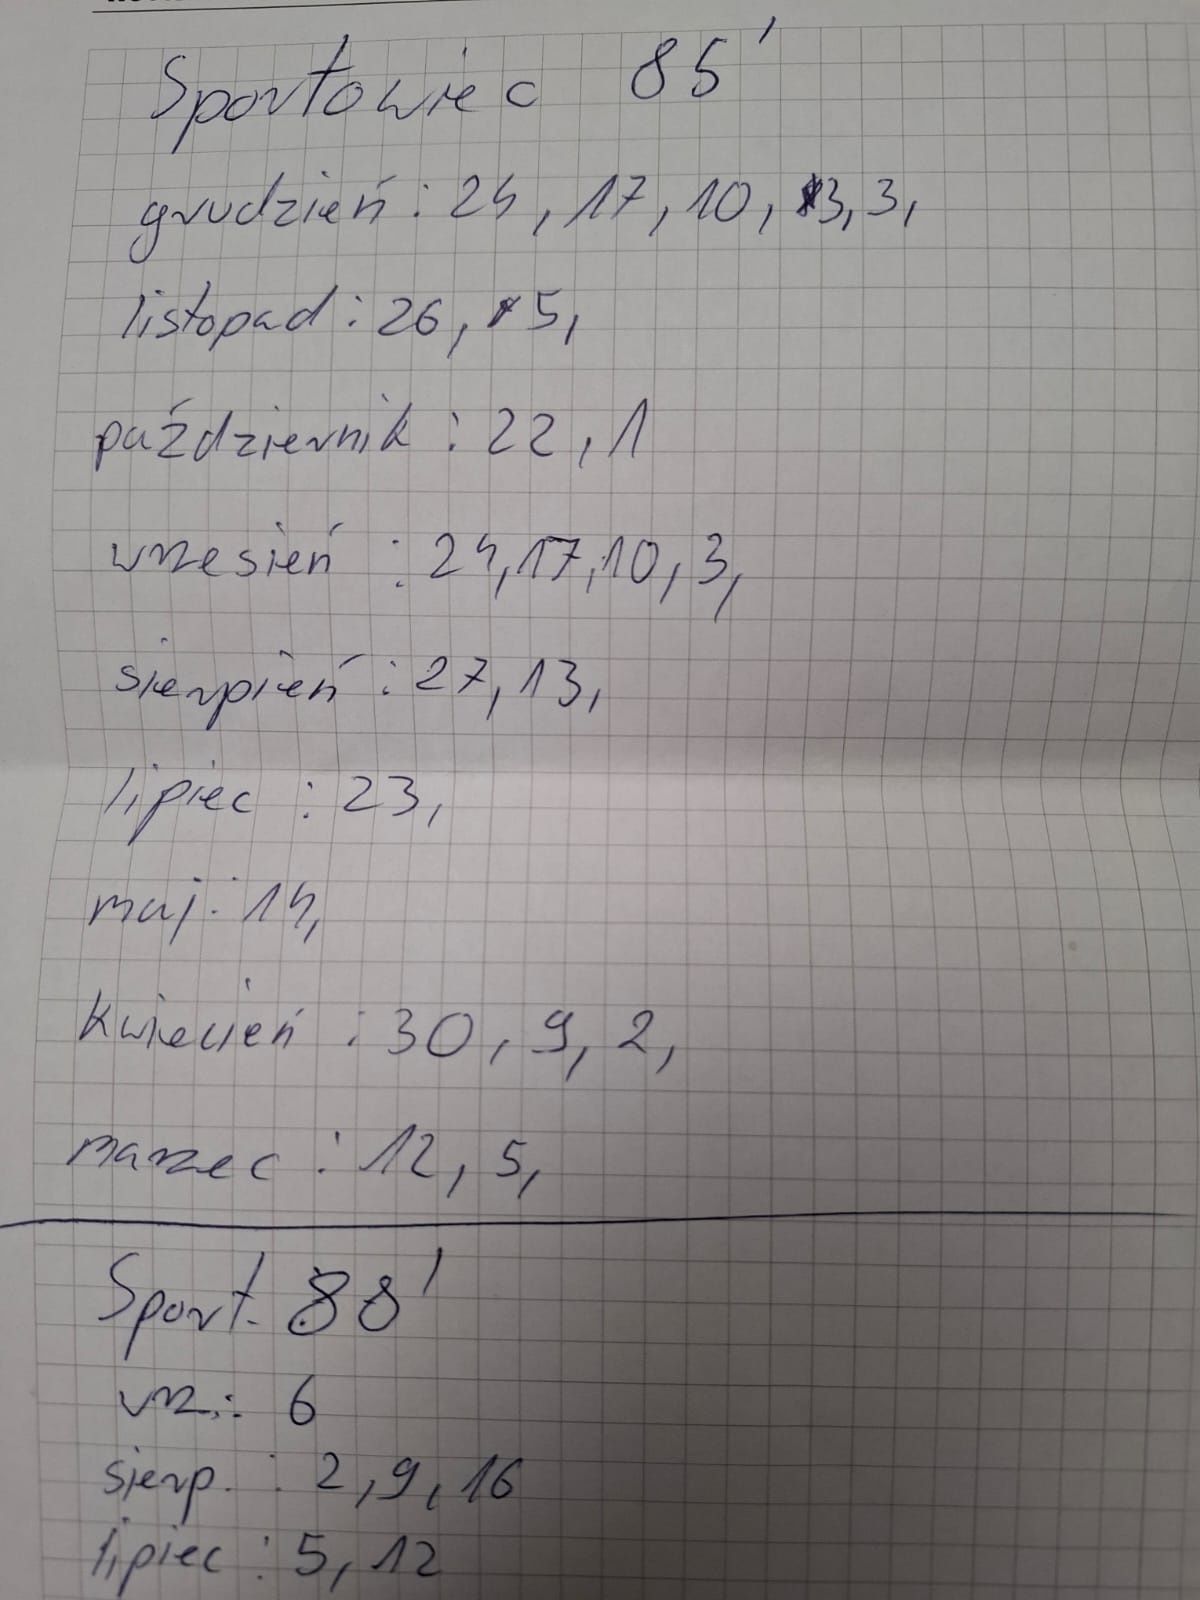 Sportowiec 85'
grudzień : 24, 17, 10, 3, 3,
listopad : 26, 5,
październik : 22, 1
wrzesień : 24, 17, 10, 3,
sierpień : 27, 13,
lipiec : 23,
maj : 14,
kwiecień : 30, 9, 2,
marzec : 12, 5,
Sport. 88'
wrz. : 6
sierp. : 2, 9, 16
lipiec : 5, 12